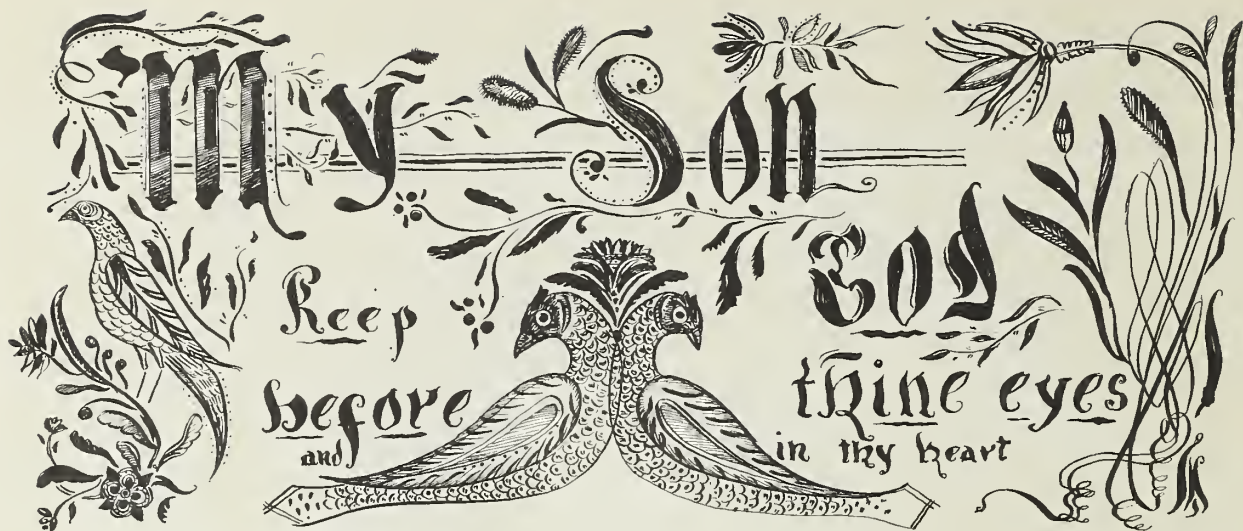 My Son
Keep God
before thine eyes
and in thy heart